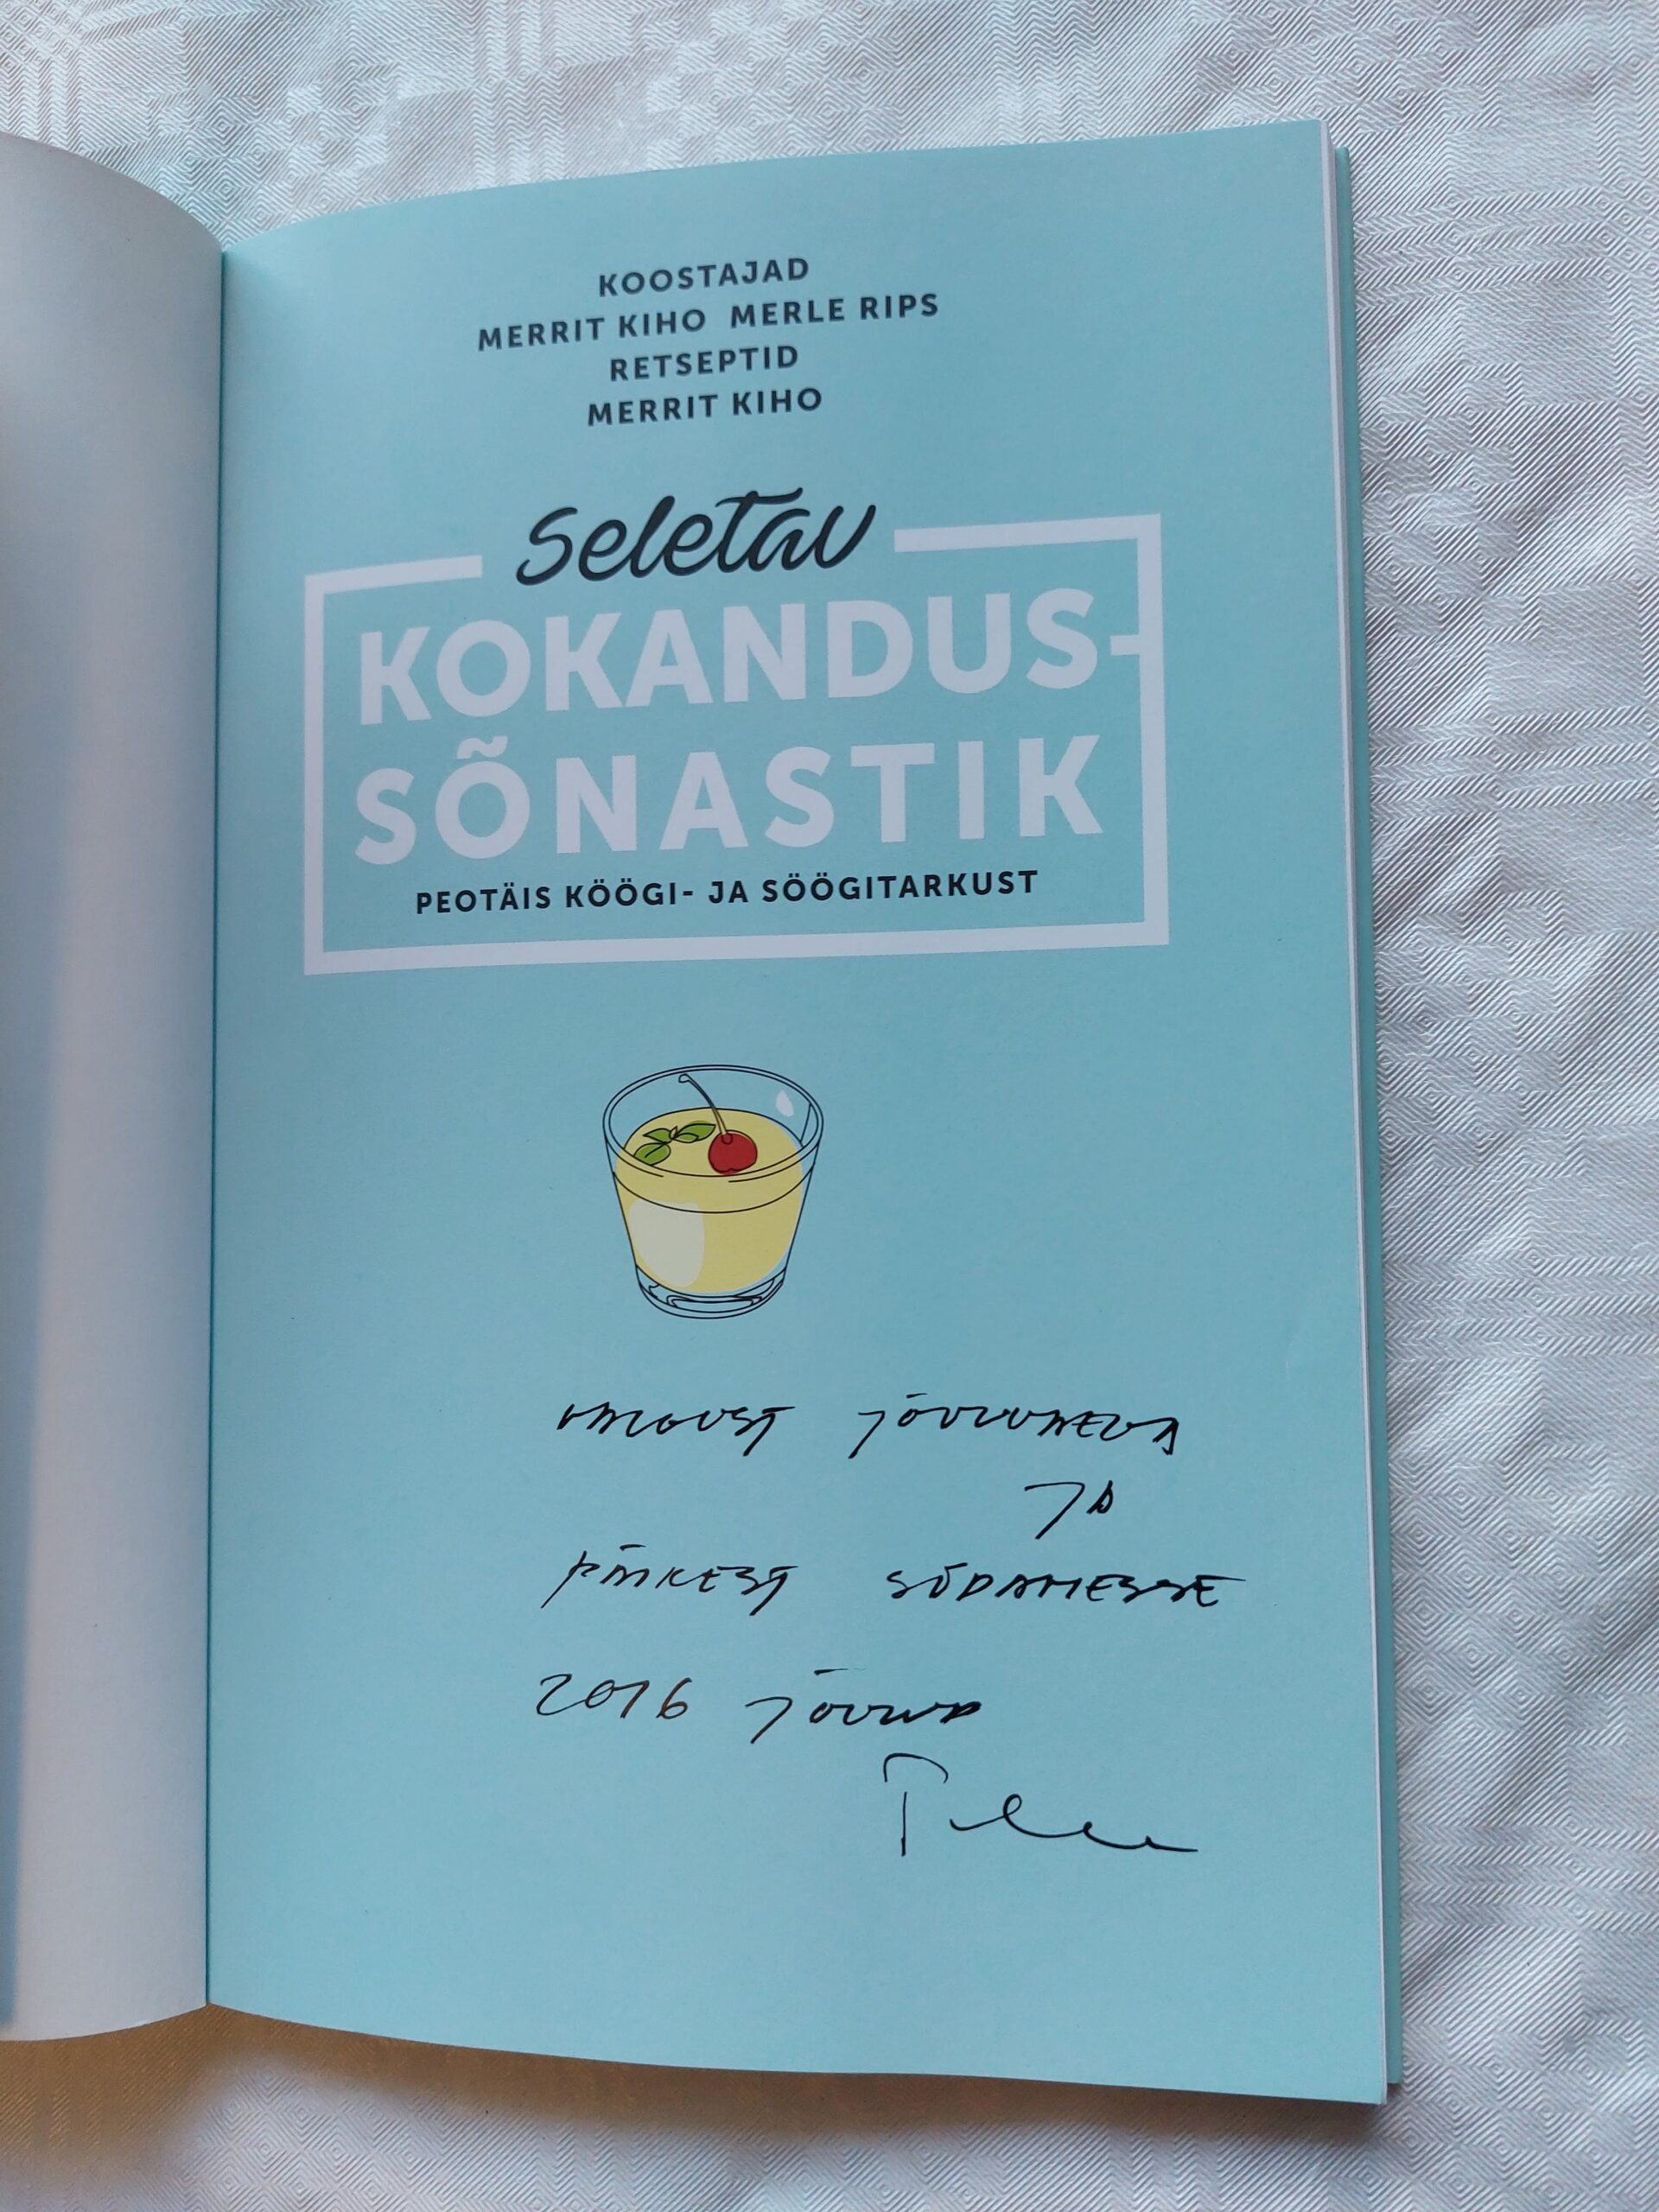 KOOSTAJAD
MERRIT KIHO MERLE RIPS
RETSEPTID
MERRIT KIHO
Seletav
KOKANDUS-
SÕNASTIK
PEOTÄIS KÖÖGI- JA SÖÖGITARKUST
VALGUST JÕULUAEGA
JA
PÄIKEST SÜDAMESSE
2016 JÕULUD